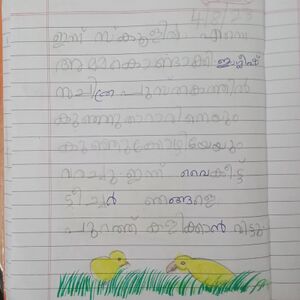 4/8/23
ഇന്ന് സ്കൂളിൽ എന്നെ
അമ്മകൊണ്ടാക്കി ഇംഗ്ലീഷ്
സചിത്ര പുസ്തകത്തിൽ
കുഞ്ഞുതാറാവിനെയും
കുഞ്ഞുക്കോഴിയേയും
വരച്ചു ഇന്ന് വൈകിട്ട്
ടീച്ചർ ഞങ്ങളെ
പുറത്ത് കളിക്കാൻ വിട്ടു.